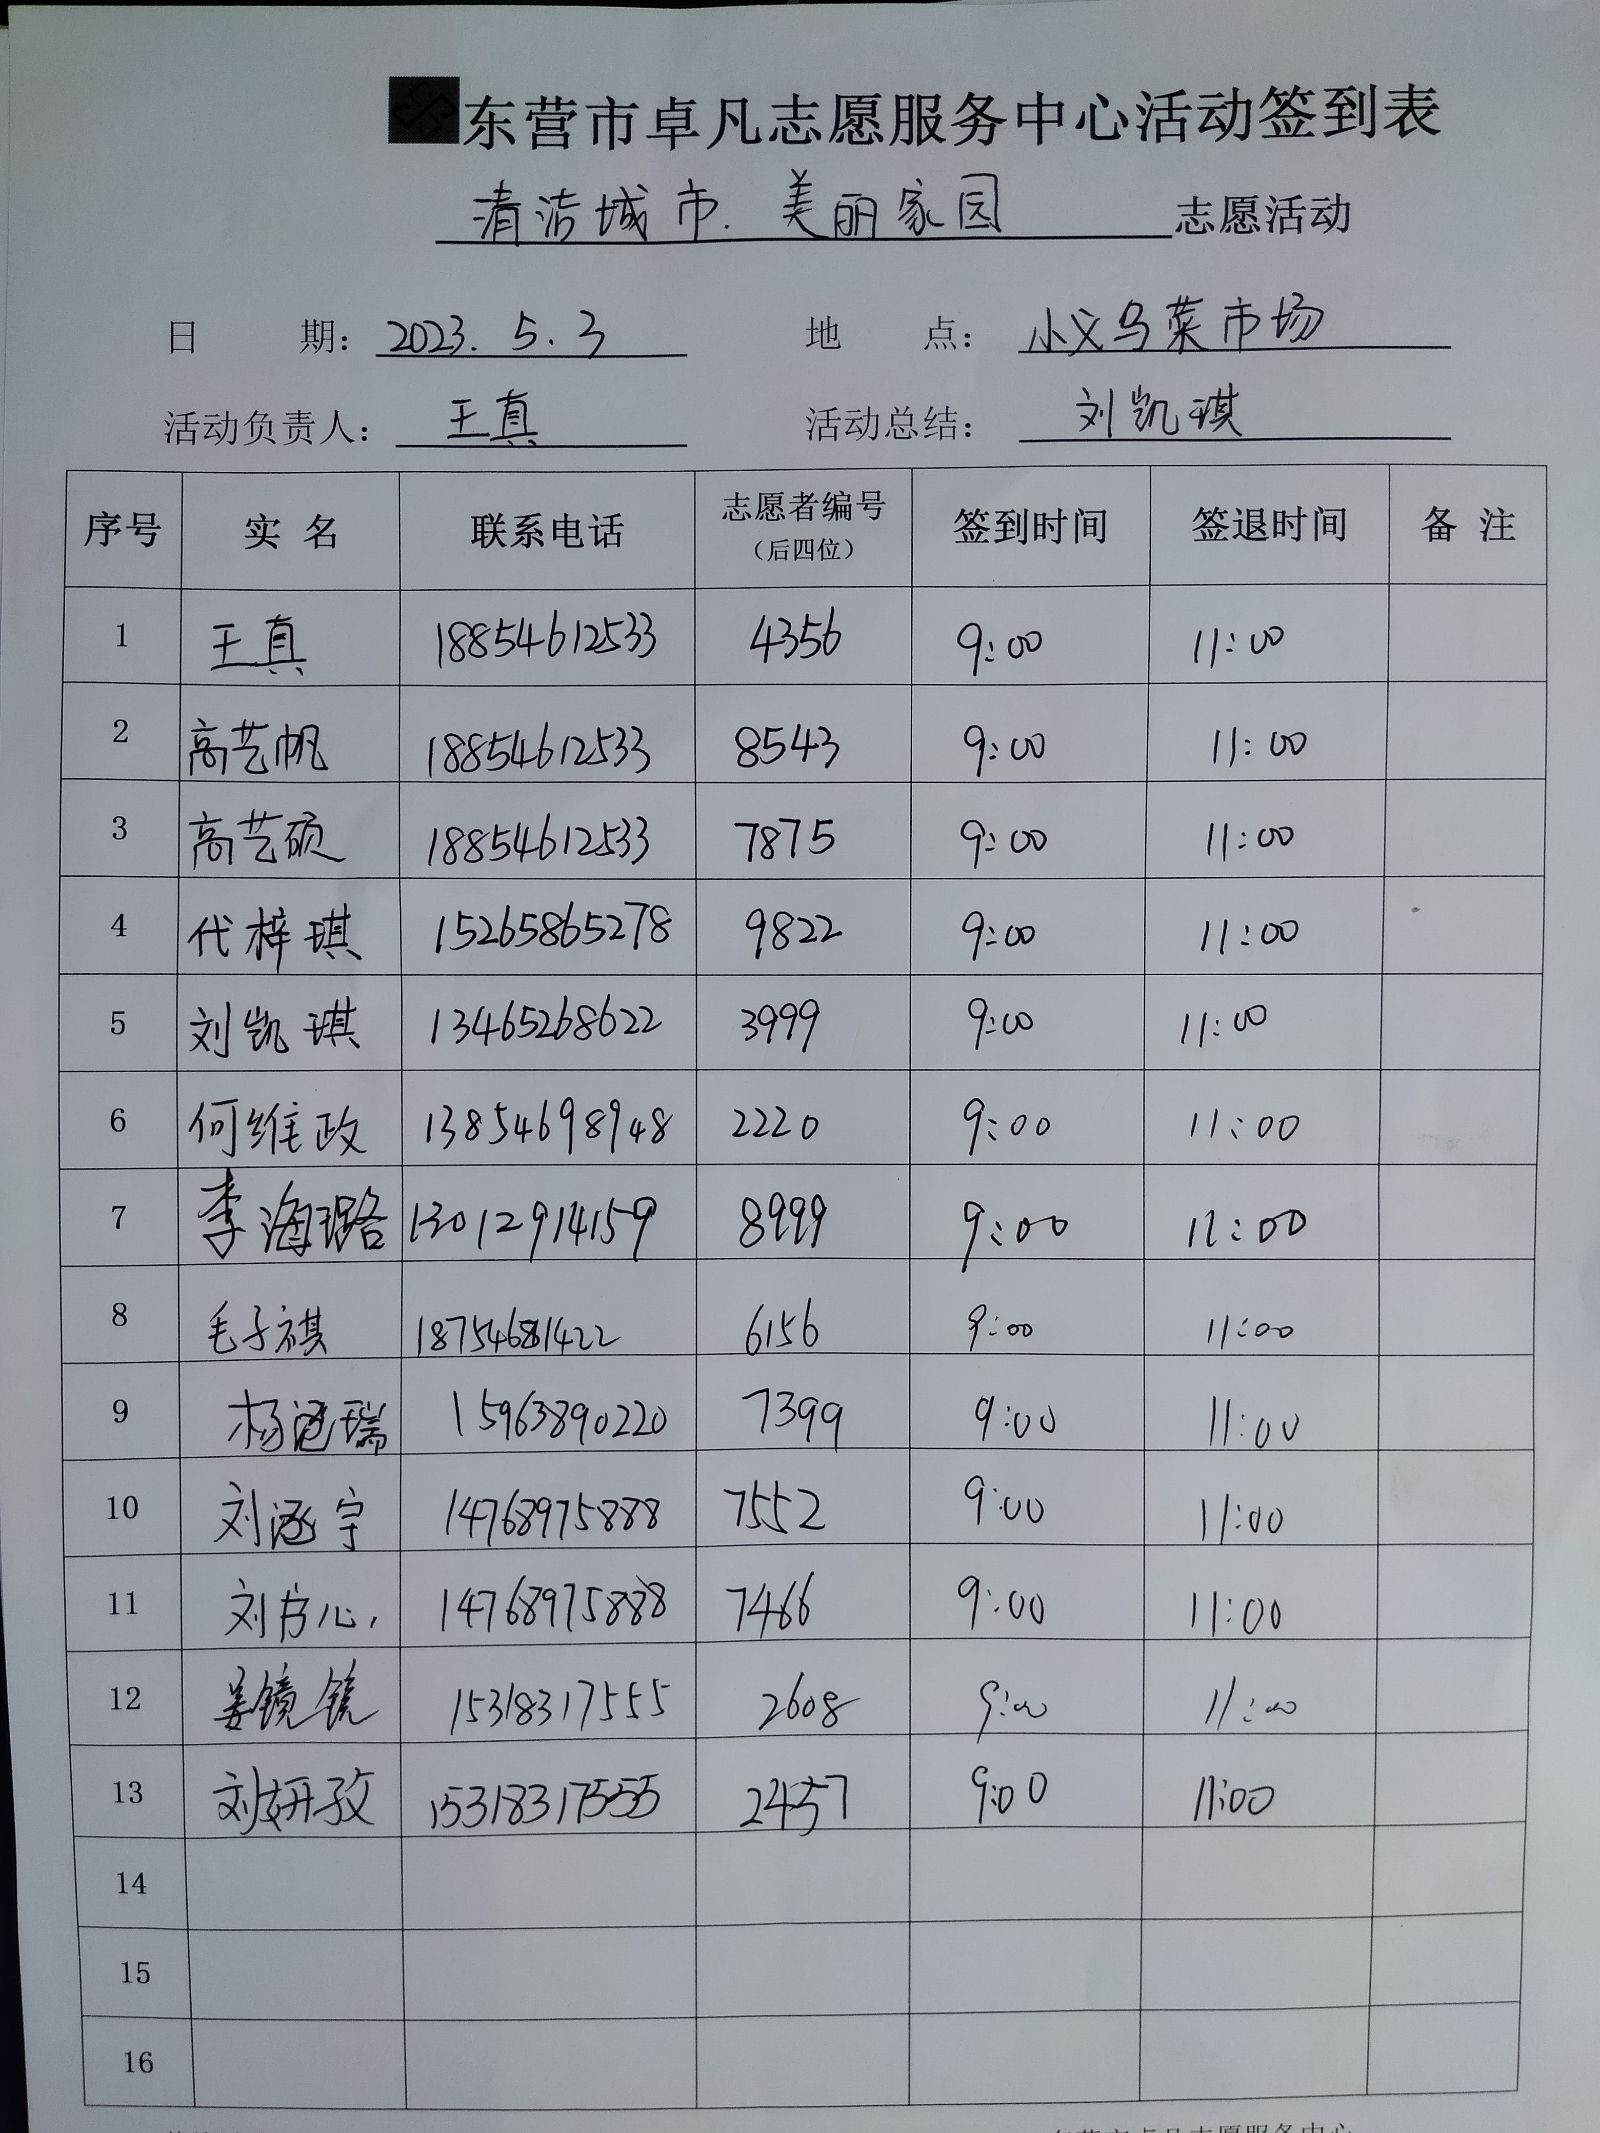 东营市卓凡志愿服务中心活动签到表
清洁城市.美丽家园 志愿活动
日期：2023.5.3 地点：小义乌菜市场
活动负责人：王真 活动总结：刘凯琪
序号 实名 联系电话 志愿者编号（后四位） 签到时间 签退时间 备注
1 王真 18854612533 4356 9:00 11:00
2 高艺帆 18854612533 8543 9:00 11:00
3 高艺硕 18854612533 7875 9:00 11:00
4 代梓琪 15265865278 9822 9:00 11:00
5 刘凯琪 13465268622 3999 9:00 11:00
6 何维政 13854698948 2220 9:00 11:00
7 李海璐 13012914159 8999 9:00 11:00
8 毛子祺 18754681422 6156 9:00 11:00
9 杨 瑞 15963890220 7399 9:00 11:00
10 刘涵宇 14768975888 7552 9:00 11:00
11 刘 心 14768975888 7466 9:00 11:00
12 姜镜 15318317555 2608 9:00 11:00
13 刘妍孜 15318317555 2457 9:00 11:00
14
15
16
东营市卓凡志愿服务中心